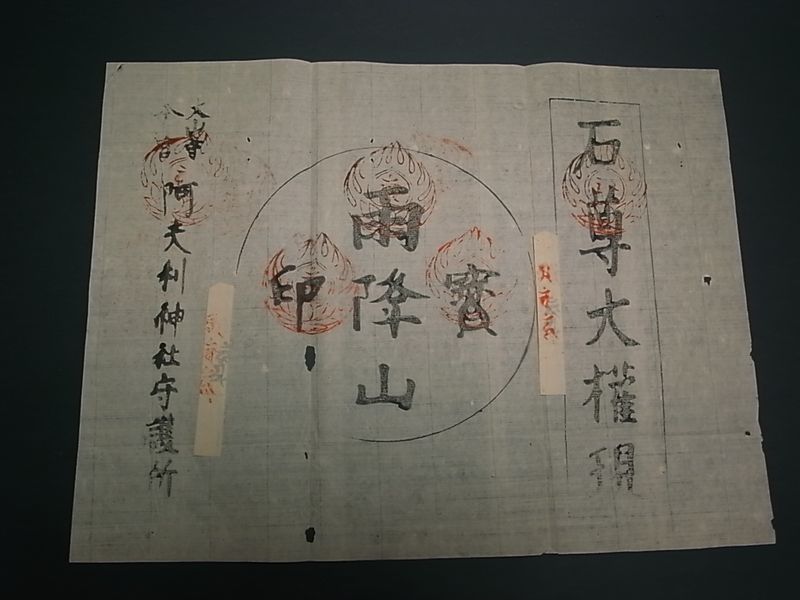 石尊大權現
寶
雨降山
印
大山寺
阿夫利神社守護所